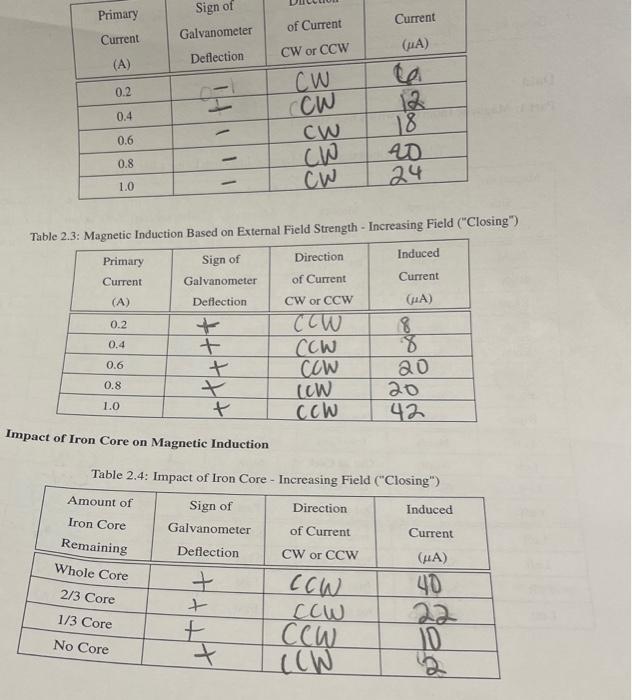 Primary Current (A) | Sign of Galvanometer Deflection | of Current CW or CCW | Current (μA)
0.2 | − | CW
0.4 | CW | 12
0.6 | − | CW | 18
0.8 | − | CW | 20
1.0 | − | CW | 24
Table 2.3: Magnetic Induction Based on External Field Strength - Increasing Field ("Closing")
Primary Current (A) | Sign of Galvanometer Deflection | Direction of Current CW or CCW | Induced Current (μA)
0.2 | + | CCW | 8
0.4 | + | CCW | 8
0.6 | + | CCW | 20
0.8 | + | CCW | 20
1.0 | + | CCW | 42
Impact of Iron Core on Magnetic Induction
Table 2.4: Impact of Iron Core - Increasing Field ("Closing")
Amount of Iron Core Remaining | Sign of Galvanometer Deflection | Direction of Current CW or CCW | Induced Current (μA)
Whole Core | + | CCW | 40
2/3 Core | + | CCW | 22
1/3 Core | + | CCW | 10
No Core | + | CCW | 2